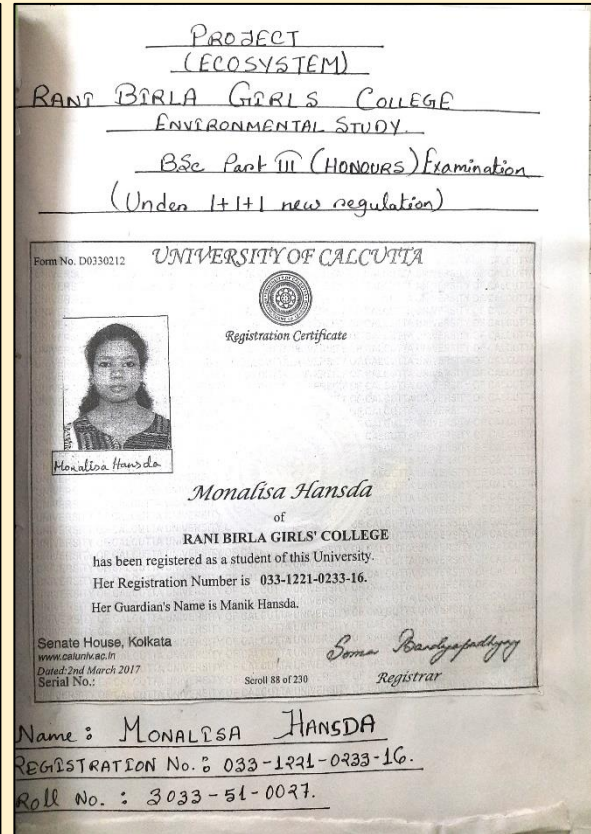 PROJECT
(ECOSYSTEM)
RANI BIRLA GIRLS COLLEGE
ENVIRONMENTAL STUDY.
BSc Part III (HONOURS) Examination
(Under 1+1+1 new regulation)
Form No. D0330212 UNIVERSITY OF CALCUTTA
Registration Certificate
Monalisa Hansda
Monalisa Hansda
of
RANI BIRLA GIRLS' COLLEGE
has been registered as a student of this University.
Her Registration Number is 033-1221-0233-16.
Her Guardian's Name is Manik Hansda.
Senate House, Kolkata
www.caluniv.ac.in
Dated:2nd March 2017
Soma Bandyopadhyay
Serial No.: Scroll 88 of 230 Registrar
Name : MONALISA HANSDA
REGISTRATION No. : 033-1221-0233-16.
Roll No. : 3033-51-0027.